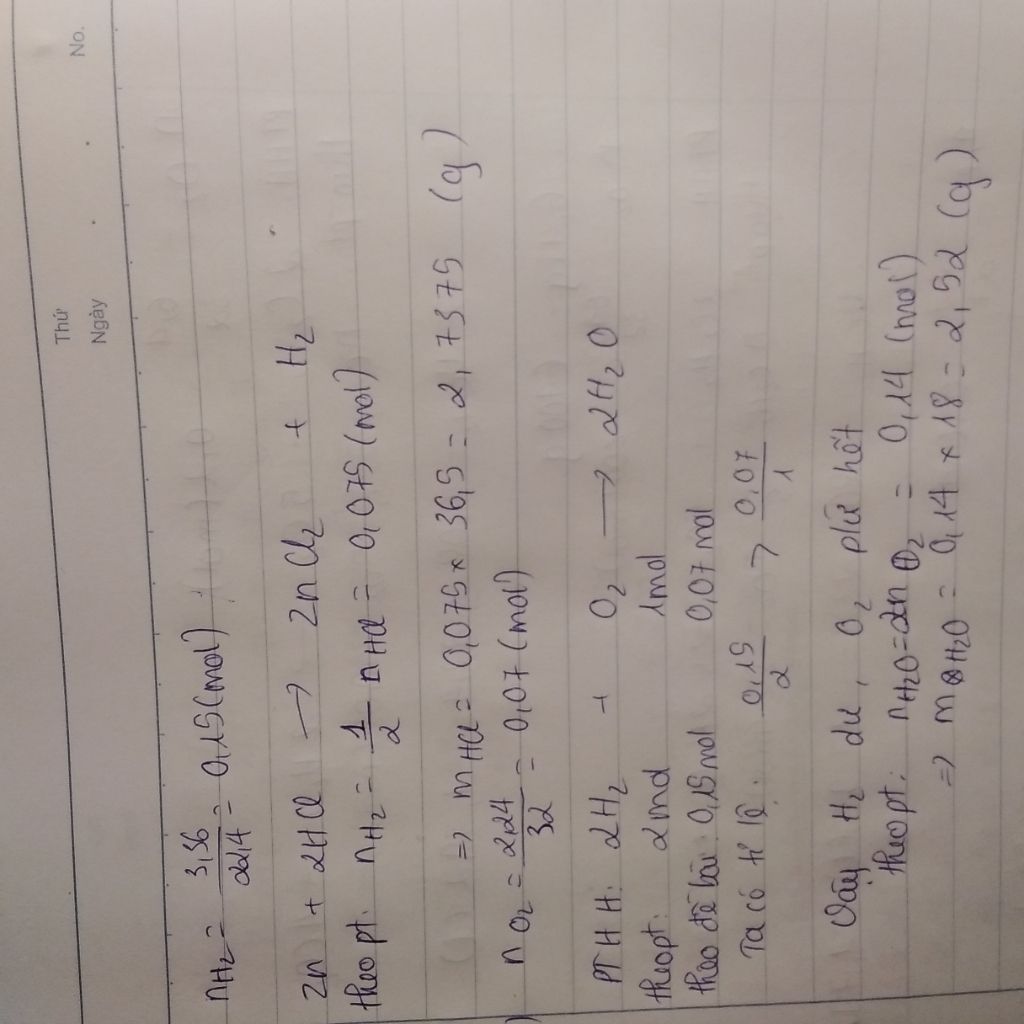 Thứ
Ngày
No.
nH₂ = 3,36/22,4 = 0,15 (mol)
Zn + 2HCl → ZnCl₂ + H₂
theo pt: nH₂ = 1/2 nHCl = 0,075 (mol)
=> mHCl = 0,075 × 36,5 = 2,7375 (g)
nO₂ = 2,24/32 = 0,07 (mol)
PTHH: 2H₂ + O₂ → 2H₂O
theo pt: 2mol 1mol
theo đề bài: 0,15mol 0,07mol
Ta có tỉ lệ: 0,15/2 > 0,07/1
Vậy H₂ dư, O₂ pứ hết
theo pt: nH₂O = 2nO₂ = 0,14 (mol)
=> mH₂O = 0,14 × 18 = 2,52 (g)